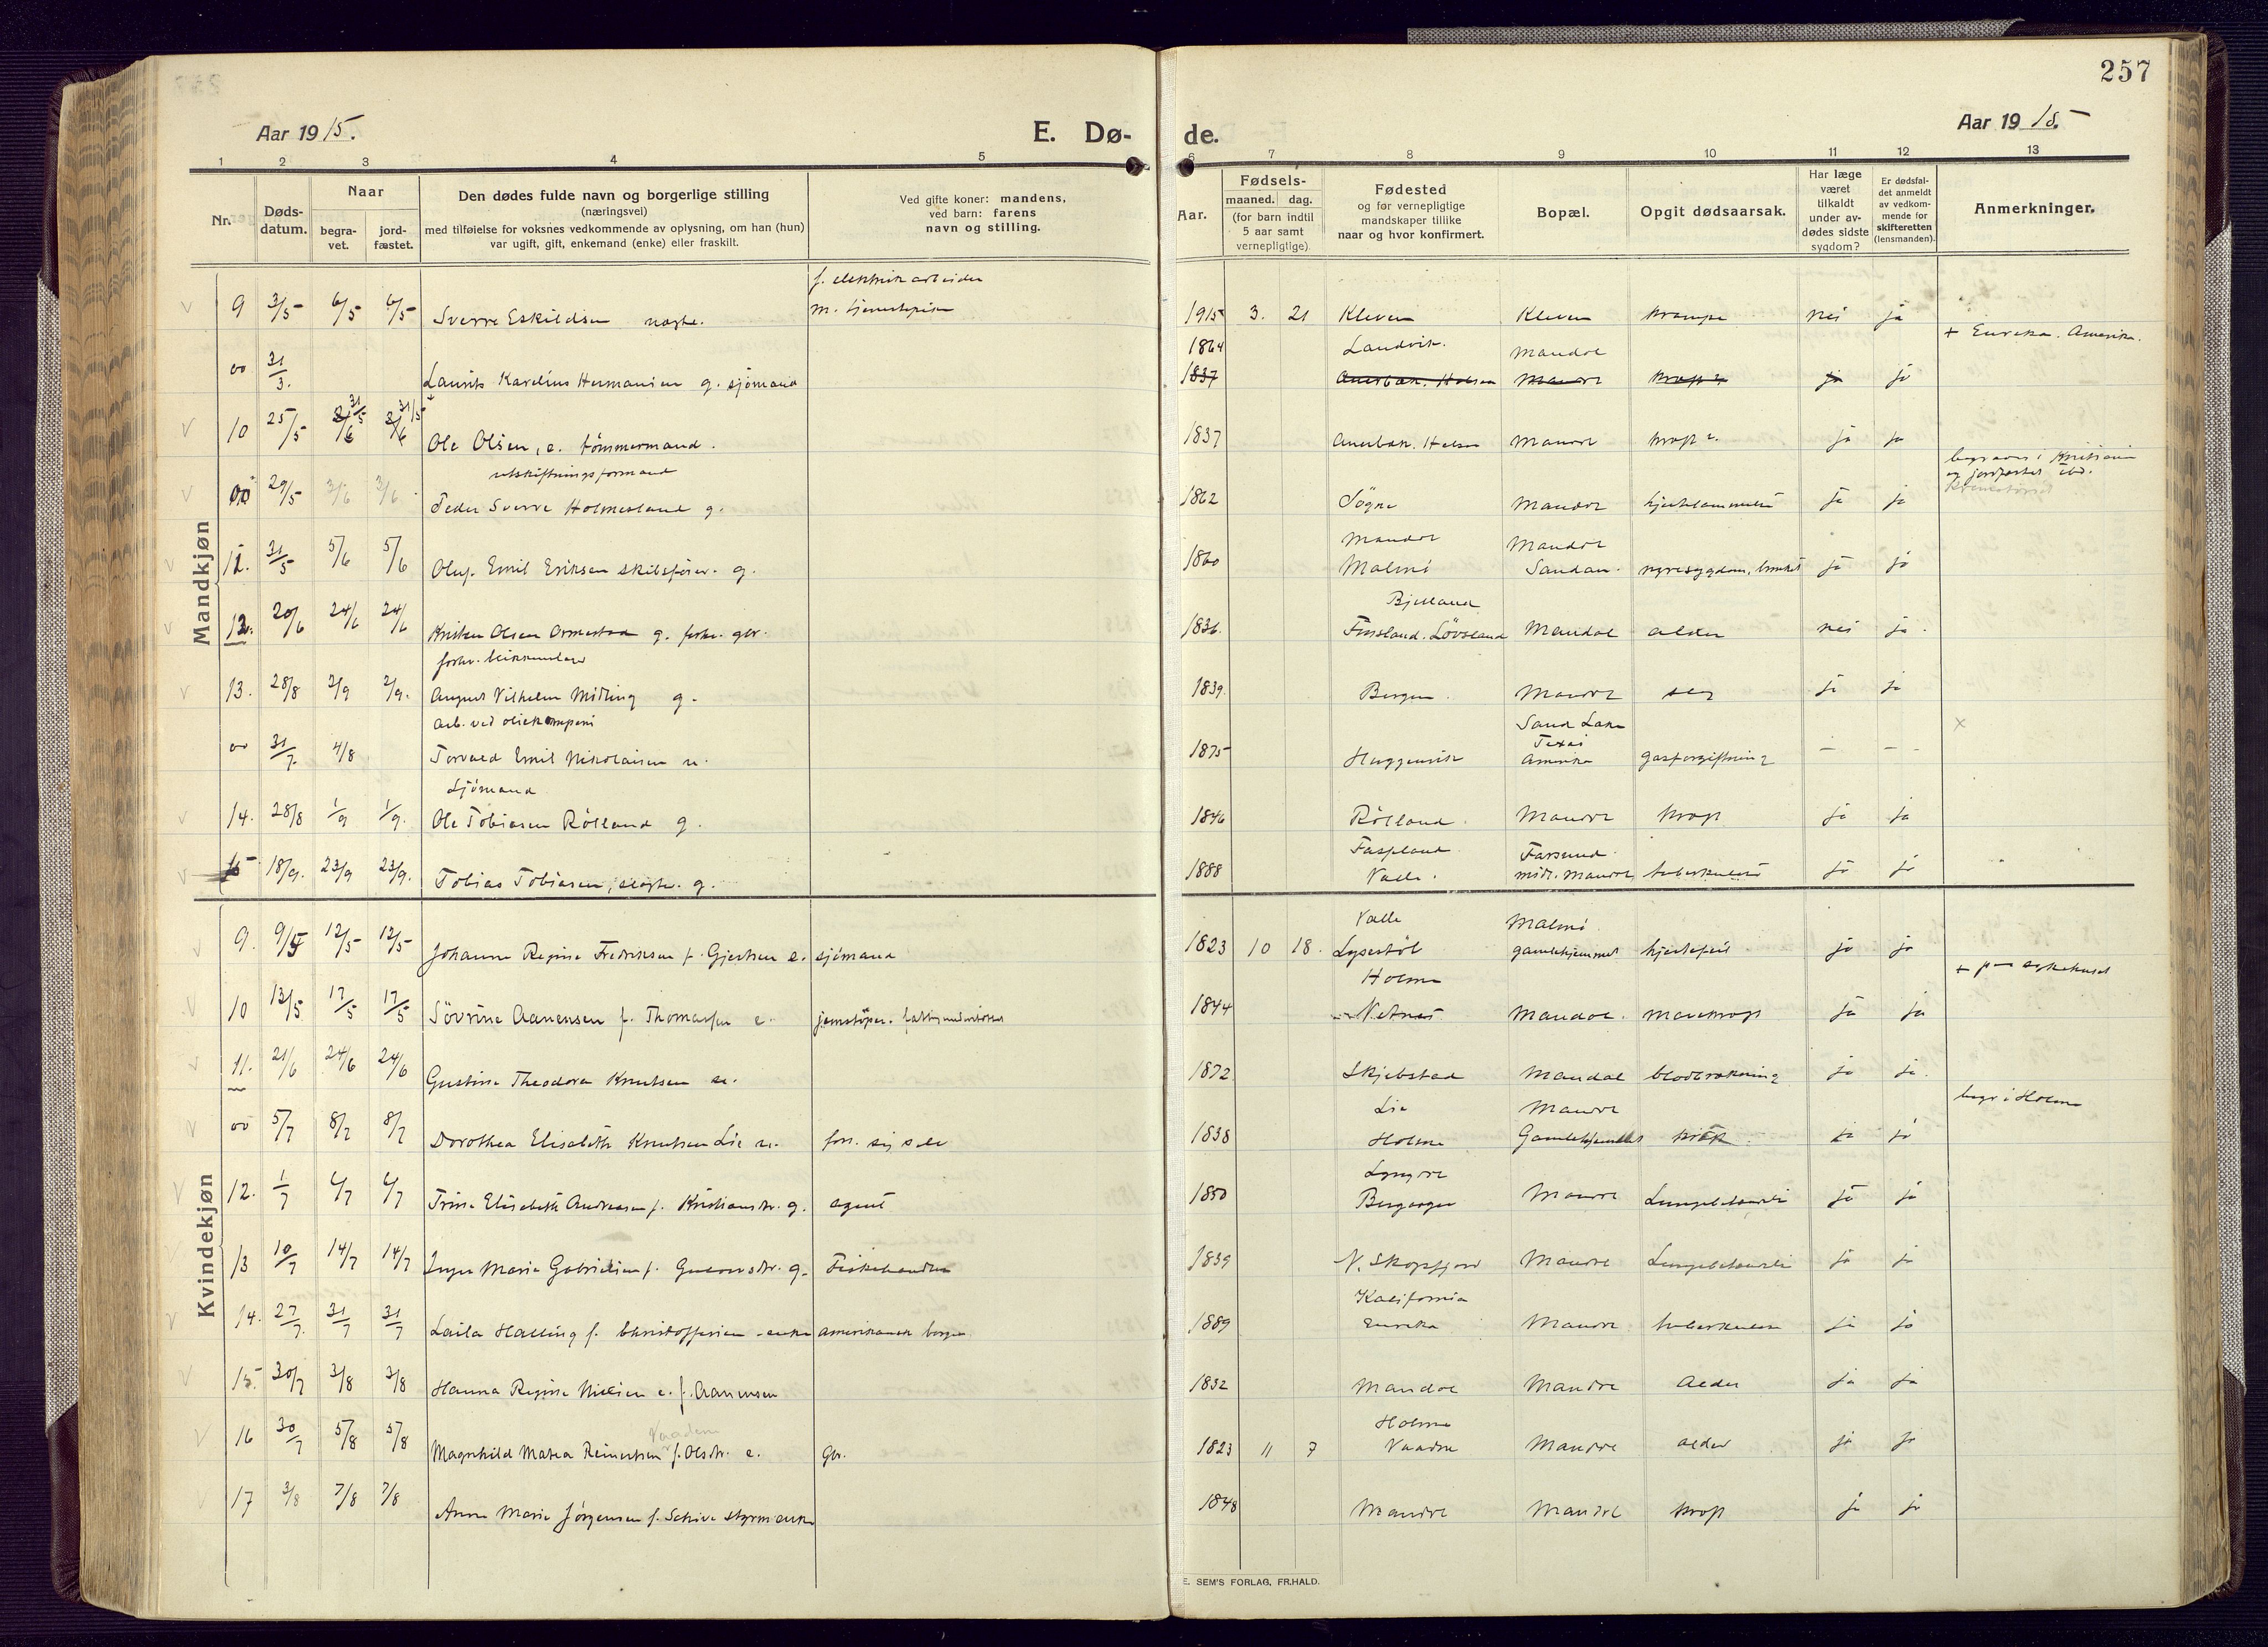 257
Aar 1915.
E. Dø-
de.
Aar 1915.
1 2 3 4 5 6 7 8 9 10 11 12 13
Nr.
Døds-
datum.
Naar
begra-
vet.
jord-
fæstet.
Den dødes fulde navn og borgerlige stilling
(næringsvei)
med tilføielse for voksnes vedkommende av oplysning, om han (hun)
var ugift, gift, enkemand (enke) eller fraskilt.
Ved gifte koner: mandens,
ved barn: farens
navn og stilling.
Aar.
Fødsels-
maaned. dag.
(for barn indtil
5 aar samt
vernepligtige).
Fødested
og før vernepligtige
mandskaper tillike
naar og hvor konfirmert.
Bopæl.
Opgit dødsaarsak.
Har læge
været
tilkaldt
under av-
dødes sidste
sygdom?
Er dødsfal-
det anmeldt
av vedkom-
mende for
skifteretten
(lensmanden).
Anmerkninger.
Mandkjøn
f. elektrik arbeider
9 3/5 6/5 6/5 Sverre Eskildsen 1915 3. 21 Kleven Kleven krampe nei ja
+ Eureka. Amerika.
1864 Landvik. Mandal
00 31/3. Laurits Karelius Hermansen g. sjømand 1837 ja
31/5 31/5
10 25/5 2/6 2/6 Ole Olsen, e. tømmermand. 1837 Mandal ja ja
utskiftningsformand
begraves i Kristiania
og jordfæstet ibd.
00 29/5 3/6 3/6 Peder Sverre Holmesland g. 1862 Søgne Mandal hjertelammelse ja ja
Mandal Mandal
12. 31/5 5/6 5/6 Oluf Emil Eriksen skibsfører. g. 1860 Malmø Sandan. nyresygdom, ja ja
Bjelland
12. 20/6 24/6 24/6 Kristen Olsen Ormestad g. forhv. gbr. 1836 Finsland. Løvsland Mandal alder nei ja.
13. 28/8 2/9 2/9. August Vilhelm Midling g. 1839 Bergen. Mandal slag ja ja
arb. ved oliekompani
Sand Lake
Texas
00 31/7. 4/8 Torvald Emil Nikolaisen u. 1875 Haggenvik Amerika gasforgiftning — —
Sjømand
14. 28/8 1/9 1/9. Ole Tobiasen Rølland g. 1846 Rølland. Mandal krop ja ja
Farsund
15 18/9. 23/9 23/9. Tobias Tobiasen, g. 1888 Valle. Mandal tuberkulose ja ja
Kvindekjøn
Valle Malmø.
9. 9/5 12/5 12/5 Johanne Regine Fredriksen f. Gjertsen e. sjømand 1823 10 18. Lysestøl gamlehjemmet hjertefeil ja ja
Holme
+ paa sykehuset
10 13/5 17/5 17/5 Søvrine Aanensen f. Thomassen e. jernstøper. fattigunderstøttet 1844 Mandal. ja ja
11. 21/6 24/6 24/6 Gustine Theodora Knutsen u. 1872 Skjebstad Mandal blodbrækning ja ja.
Lie Mandal
begr i Holme
00 5/7 8/7 8/7 Dorothea Elisabeth Knutsen Lie u. fors. sig selv 1838 Holme Gamlehjemmet ja ja
Lyngdal
12. 1/7 6/7 6/7 Trine Elisabeth Andreasen f. Kristiansdtr. g. agent 1850 Mandal Lungebetændelse ja ja
13 10/7 14/7 14/7 Inger Marie Gabrielsen f. g. Fiskehandler 1839 N. Skogsfjord Mandal Lungebetændelse ja ja
Kalifornia
14. 27/7. 31/7 31/7 Laila Halling f. Christoffersen - enke amerikansk borger 1889 Eureka Mandal tuberkulose ja ja
15. 30/7 3/8 3/8 Hanna Regine Nielsen e. f. Aanensen 1832 Mandal Mandal Alder ja ja
Holme
16 30/7 5/8 5/8 Magnhild Matea Reinertsen f. Olsdtr. e. Gbr. 1823 11 7 Vaadne Mandal alder ja ja
17 3/8 7/8 7/8 Anne Marie Jørgensen f. Schive styrm enke 1848 Mandal Mandal krop ja ja
E. SEM'S FORLAG, FR.HALD.